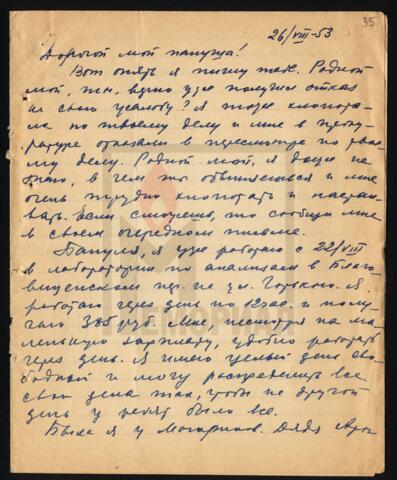 35
26/VIII-53
Дорогой мой папуща!
Вот опять я пишу тебе. Родной
мой, ты, верно уже получил отказ
на свою жалобу? Я тоже хлопота-
ла по твоему делу и мне в проку-
ратуре отказали в пересмотре по твое-
му делу. Родной мой, я даже не
знаю, в чем ты обвиняешься и мне
очень трудно хлопотать и настаи-
вать. Если сможешь, то сообщи мне
в своем очередном письме.
Папуля, я уже работаю с 22/VIII
в лаборатории по анализам в Благо-
вещенском пер. не ул. Горького. Я
работаю через день по 12 час. и полу-
чаю 385 руб. Мне, несмотря на ма-
ленькую зарплату, удобно работать
через день. Я имею целый день сво-
бодный и могу распределить все
свои дела так, чтобы на другой
день у ребят было все.
Была я у Дядя
МЕМОРИАЛ